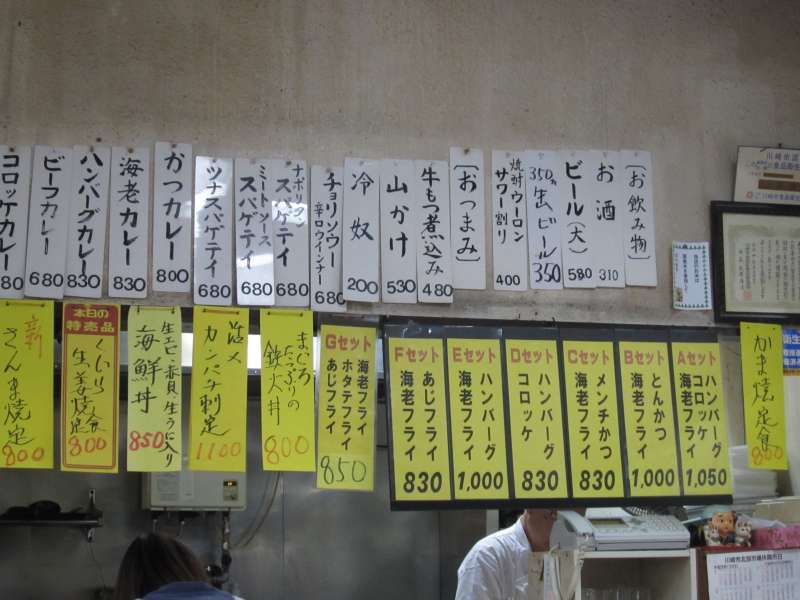 〔お飲み物〕
お酒 310
ビール(大) 580
350ml 生ビール 350
焼酎 ウーロン
サワー割り 400
〔おつまみ〕
牛もつ煮込み 480
山かけ 530
冷奴 200
チョリソウー
辛ロウインナー 680
ナポリタン
スパゲテイ 680
ミートソース
スパゲテイ 680
ツナスパゲテイ 680
かつカレー 800
海老カレー 830
ハンバーグカレー 830
ビーフカレー 680
コロッケカレー
かま焼定食
800
Aセット
ハンバーグ
コロッケ
海老フライ
1,050
Bセット
とんかつ
海老フライ
1,000
Cセット
メンチかつ
海老フライ
830
Dセット
ハンバーグ
コロッケ
830
Eセット
ハンバーグ
海老フライ
1,000
Fセット
あじフライ
海老フライ
830
Gセット
海老フライ
ホタテフライ
あじフライ
850
まぐろ
たっぷりの
鉄火丼
800
活〆
カンパチ刺定
1100
生エビ・赤貝・生うに入り
海鮮丼
850
本日の
特売品
生姜焼定食
800
新
さんま焼定
800